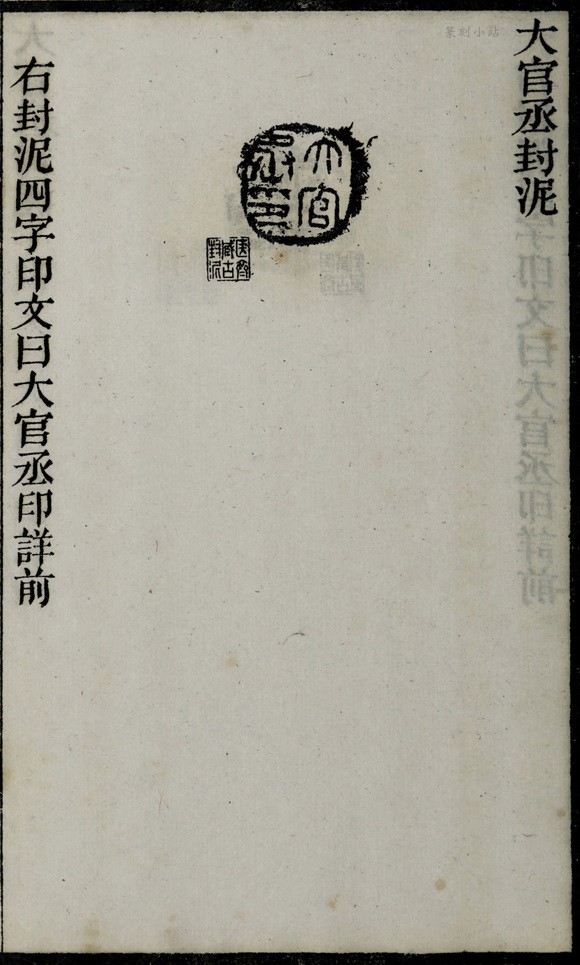 大官丞封泥
大官丞印
右封泥四字印文曰大官丞印詳前
篆刻小站